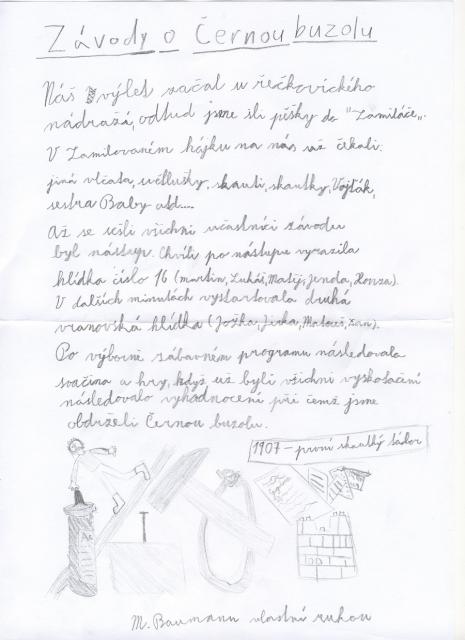 Závody o Černou buzolu
Náš výlet začal u řečkovického
nádraží, odtud jsme šli pěšky do "Zamiláče".
V Zamilovaném hájku na nás už čekali:
jiná vlčata, světlušky, skauti, skautky, Vojťák,
sestra Baby atd....
Až se sešli všichni účastníci závodu
byl nástup. Chvíli po nástupu vyrazila
hlídka číslo 16 (martin, Lukáš, Matěj, Jenda, Honza).
V dalších minutách vystartovala druhá
vranovská hlídka (Jožka, Jirka, Matouš, Jan).
Po výborně zábavném programu následovala
svačina a hry, když už byli všichni vyskotačení
následovalo vyhodnocení při čemž jsme
obdrželi Černou buzolu.
1907 – první skautský tábor
M. Baumann vlastní rukou